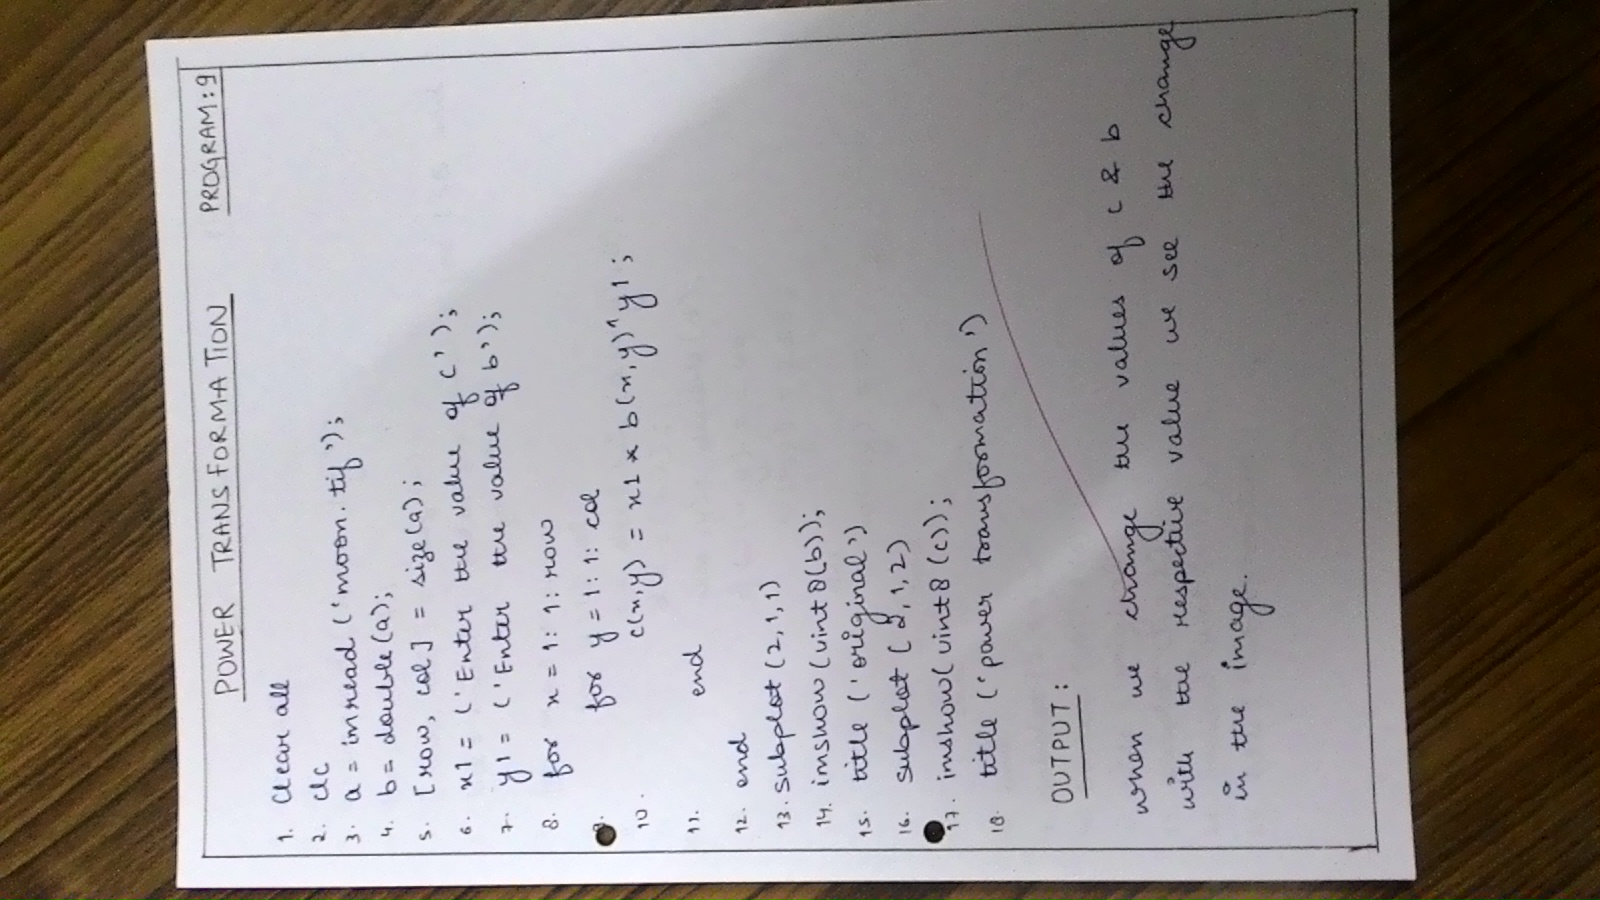 POWER TRANSFORMATION PROGRAM:9
1. Clear all
2. clc
3. a = imread ('moon.tif');
4. b = double(a);
5. [row, col] = size(a);
6. x1 = ('Enter the value of c');
7. y1 = ('Enter the value of b');
8. for x = 1:1:row
9. for y = 1:1:col
10. c(x,y) = x1 * b(x,y)^y1;
11. end
12. end
13. subplot (2,1,1)
14. imshow (uint8(b));
15. title ('original')
16. subplot (2,1,2)
17. imshow( uint8 (c));
18. title ('power transformation')
OUTPUT:
when we change the values of c & b
with the respective value we see the change
in the image.